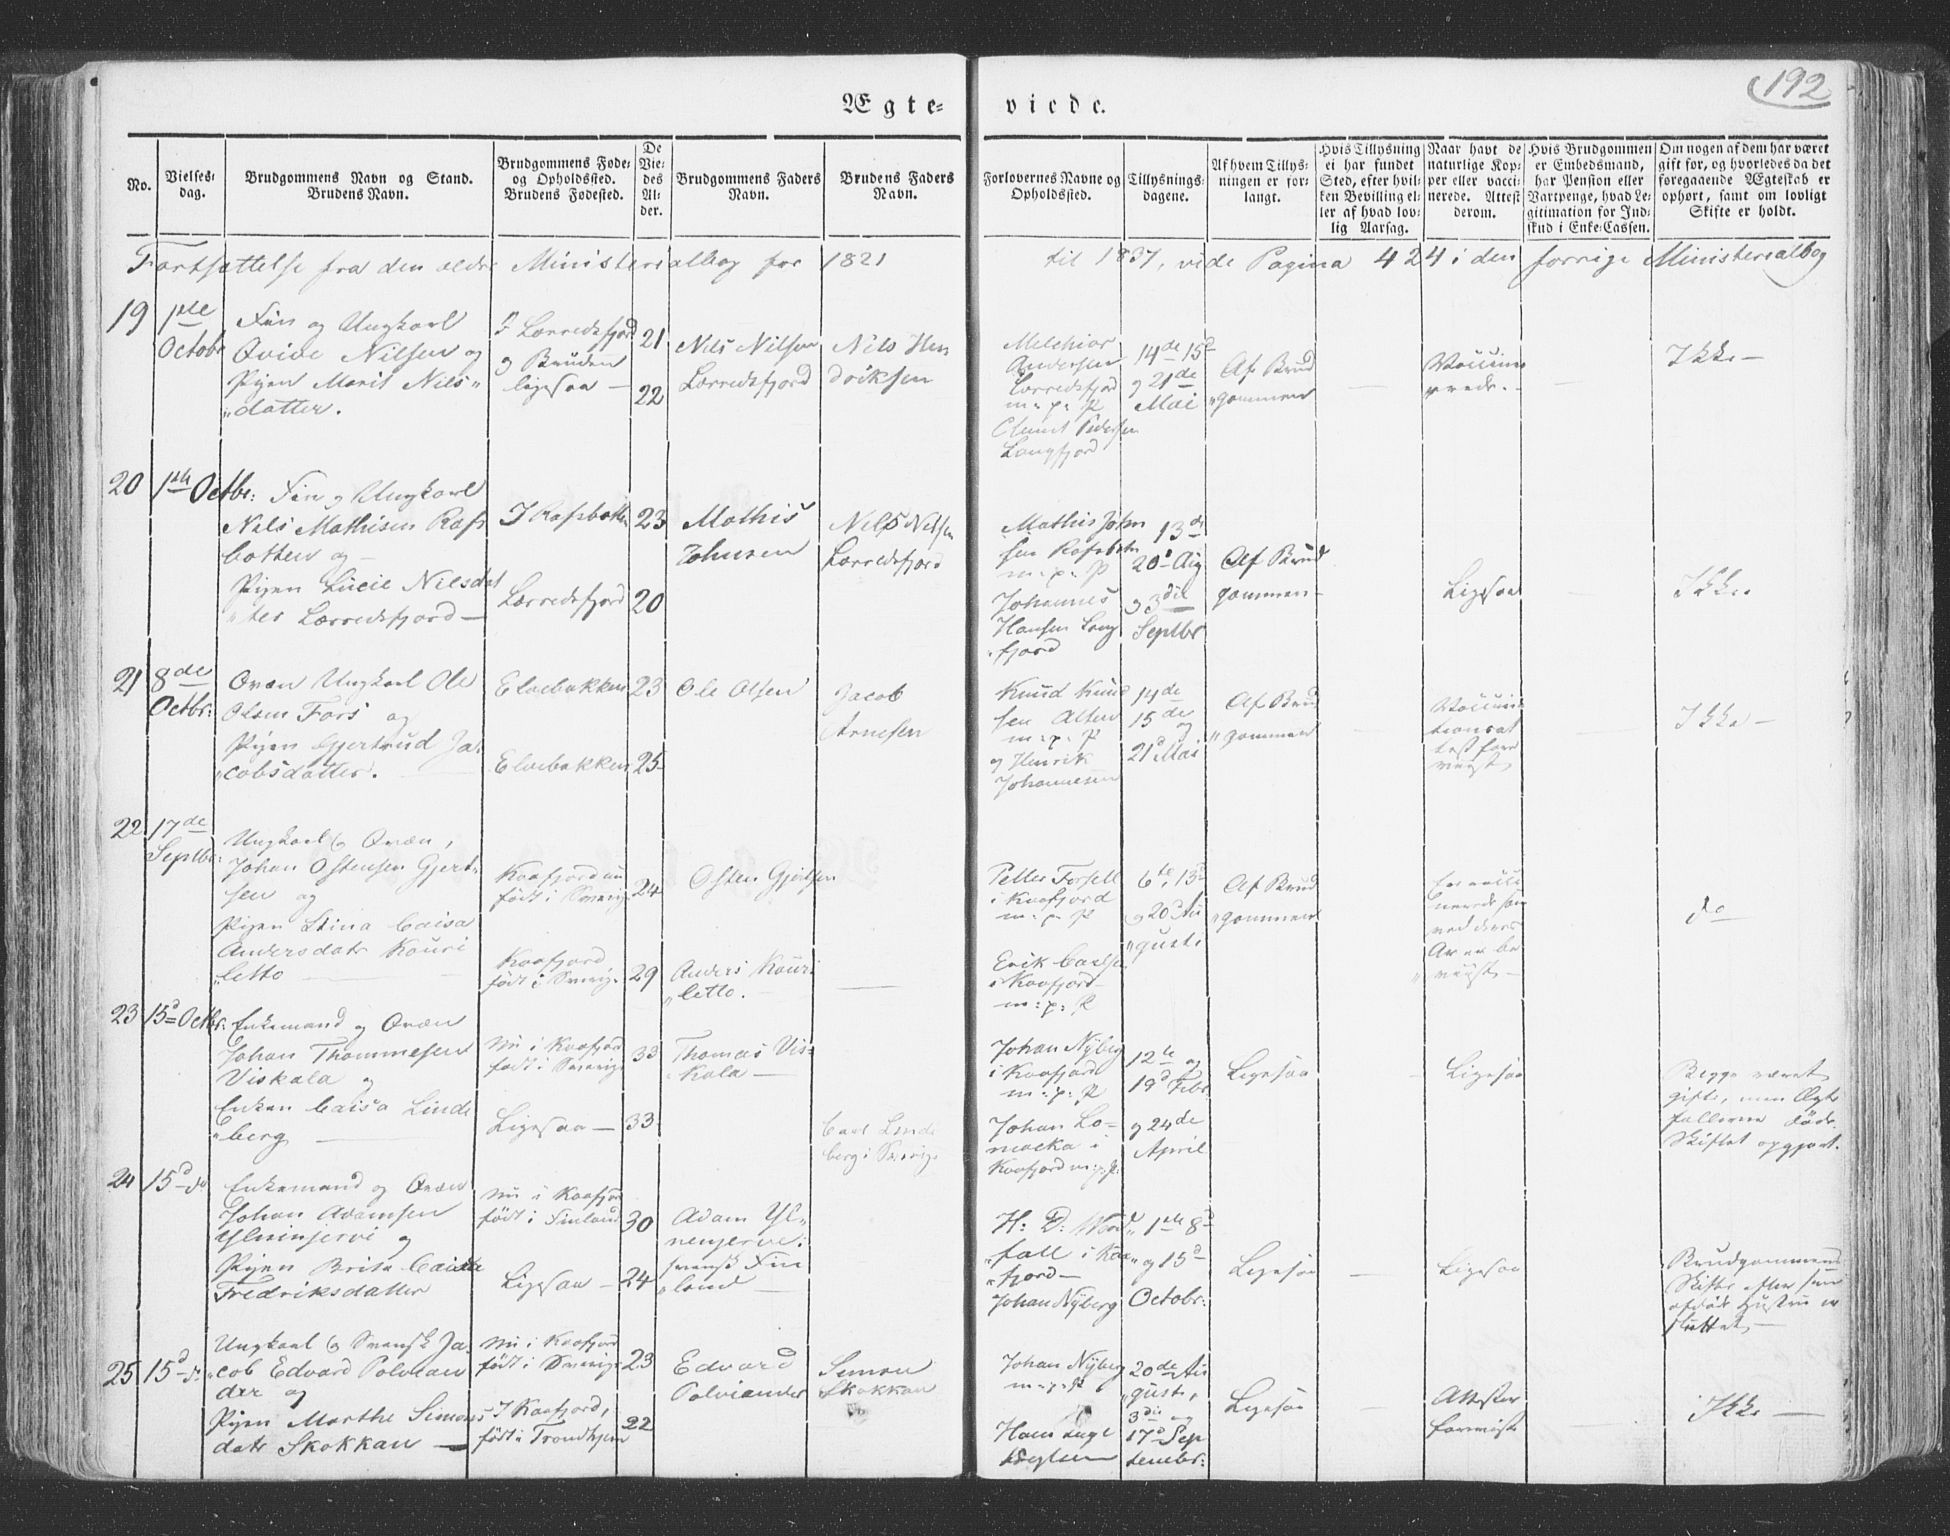 192
Ægte- viede.
No.
Vielses-
dag.
Brudgommens Navn og Stand.
Brudens Navn.
Brudgommens Føde-
og Opholdssted.
Brudens Fødested.
De
Vie-
des
Al-
der.
Brudgommens Faders
Navn.
Brudens Faders
Navn.
Forlovernes Navne og
Opholdssted.
Tillysnings-
dagene.
Af hvem Tillys-
ningen er for-
langt.
Hvis Tillysning
ei har fundet
Sted, efter hvil-
ken Bevilling el-
ler af hvad lov-
lig Aarsag.
Naar havt de
naturlige Kop-
per eller vacci-
nerede. Attest
derom.
Hvis Brudgommen
er Embedsmand,
har Pension eller
Vartpenge, hvad Le-
gitimation for Ind-
skud i Enke-Cassen.
Om nogen af dem har været
gift før, og hvorledes da det
foregaaende Ægteskab er
ophørt, samt om lovligt
Skifte er holdt.
Fortsættelse fra den ældre Ministerialbog for 1821 til 1837, vide Pagina 424 i den forrige Ministerialbog
19
1ste
Octobr
Fin og Ungkarl
Qvive Nilsen og
Pigen Marit Nils"
"datter.
I Lerredsfjord
og Bruden
ligesaa —
21
22
Nils Nilsen
Lerredsfjord
Nils Hen
driksen
Melchior
Andersen
Lerredsfjord
m: p: P
Clemet Pedersen
Langfjord
14de 15d
og 21de
Mai
Af Brud
"gommen
—
Vaccine
"rede. -
—
Ikke —
20
1ste Octbr:
Fin og Ungkarl
Nils Mathisen Rafs
botten og —
Pigen Lucie Nilsdat
"ter Lerredsfjord —
I Rafsbotten
Lerredsfjord
23
20
Mathis
Johnsen
Nils Nilsen
Lerredsfjord
Mathis John
sen Rafsbotn
m: p: P
Johannes
Hansen Lang
"fjord
13de
20d Aug
og 3die
Septbr
Af Brud
gommen -
Ligesaa
—
Ikke
21
8de
Octbr:
Qvæn Ungkarl Ole
Olsen Fors og
Pigen Gjertrud Ja-
"cobsdatter. —
Elvebakken
Elvebakken
23
25
Ole Olsen
Jacob
Arnesen
Knud Knud
sen Alten
m: p: P
og Henrik
Johannesen
14de
15de og
21d Mai
Af Brud
"gommen
Vaccina
tionsat
test fore
viist,
Ikke —
22
17de
Septbr:
Ungkarl og Qvæn,
Johan Ostensen Gjert-
sen og
Pigen Stina Caisa
Andersdatr Kouri
"letto —
Kaafjord
født i Sverig
Kaafjord
født i Sverig
24
29
Osten Gjertsen
Anders Kouri
"letto. —
—
Petter Forsell
i Kaafjord
m: p: P
Erik Carlsen
i Kaafjord
m: p: P
6te, 13d
og 20d Au
"gusti
Af Brud
"gommen
do
23
15d Octbr:
Enkemand og Qvæn
Johan Thommesen
Viskala og
Enken Caisa Linde
"berg —
Nu i Kaafjord
født i Sverig
Ligesaa —
33
33
Thomas Vis-
kala —
Carl Linde
berg i Sverig
Johan Nyberg
i Kaafjord
m: p: P
Johan Lo-
macka i
Kaafjord m: p: P:
12te og
19d Febr
og 24de
April
Ligesaa
—
Ligesaa
Begge været
gifte, men Ægte
fællerne døde.
Skiftet opgjort.
24
15d do
Enkemand og Qvæn
Johan Adamsen
Ylininjervi og
Pigen Brita Caisa
Fredriksdatter
Nu i Kaafjord
født i Finland
Ligesaa —
30
24
Adam Yl"
nenjervi:
svensk Fin
"land —
H: D: Wood
"fall i Kaa
"fjord —
Johan Nyberg
1ste 8d
og 15d
Octobr:
Ligesaa
—
Ligesaa
Brudgommens
Skifte efter sin
afdøde Hustru er
sluttet —
25
15d do
Ungkarl og Svensk Ja-
"cob Edvard Polvian
der og
Pigen Marthe Simons
datr Skokkan —
Nu i Kaafjord
født i Sverig
I Kaafjord,
født i Trondhjem
23
22
Edvard
Polviander
Simon
Skokkan
Johan Nyberg
m: p: P
Hans
20de Au
"gusti,
3die og
17d Sep
tembr:
Ligesaa
—
Attester
foreviist
—
Ikke —